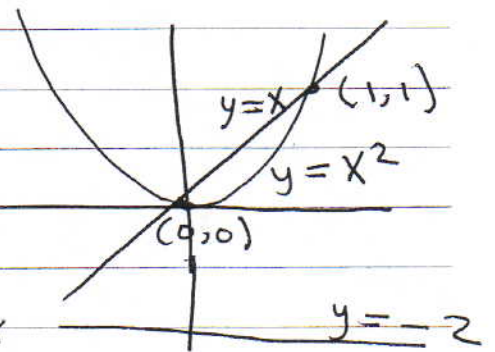 y=x (1,1)
y=x²
(0,0)
y=-2